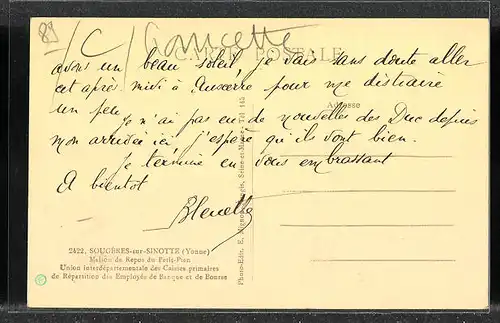 89
C / Goncette
CARTE POSTALE
avons un beau soleil, je vais sans doute aller
cet après midi à Auxerre pour me distraire
un peu
Adresse
Je n'ai pas eu de nouvelles des Duc depuis
mon arrivée ici, j'espère qu'ils vont bien.
Je termine en vous embrassant
A bientot
2422. SOUGÈRES-sur-SINOTTE (Yonne)
Maison de Repos du Paris-Pien
Union interdépartementale des Caisses primaires
de Répartition des Employés de Banque et de Bourse
Photo-Edit. E. Mignon, Nangis, Seine-et-Marne - Tél. 145